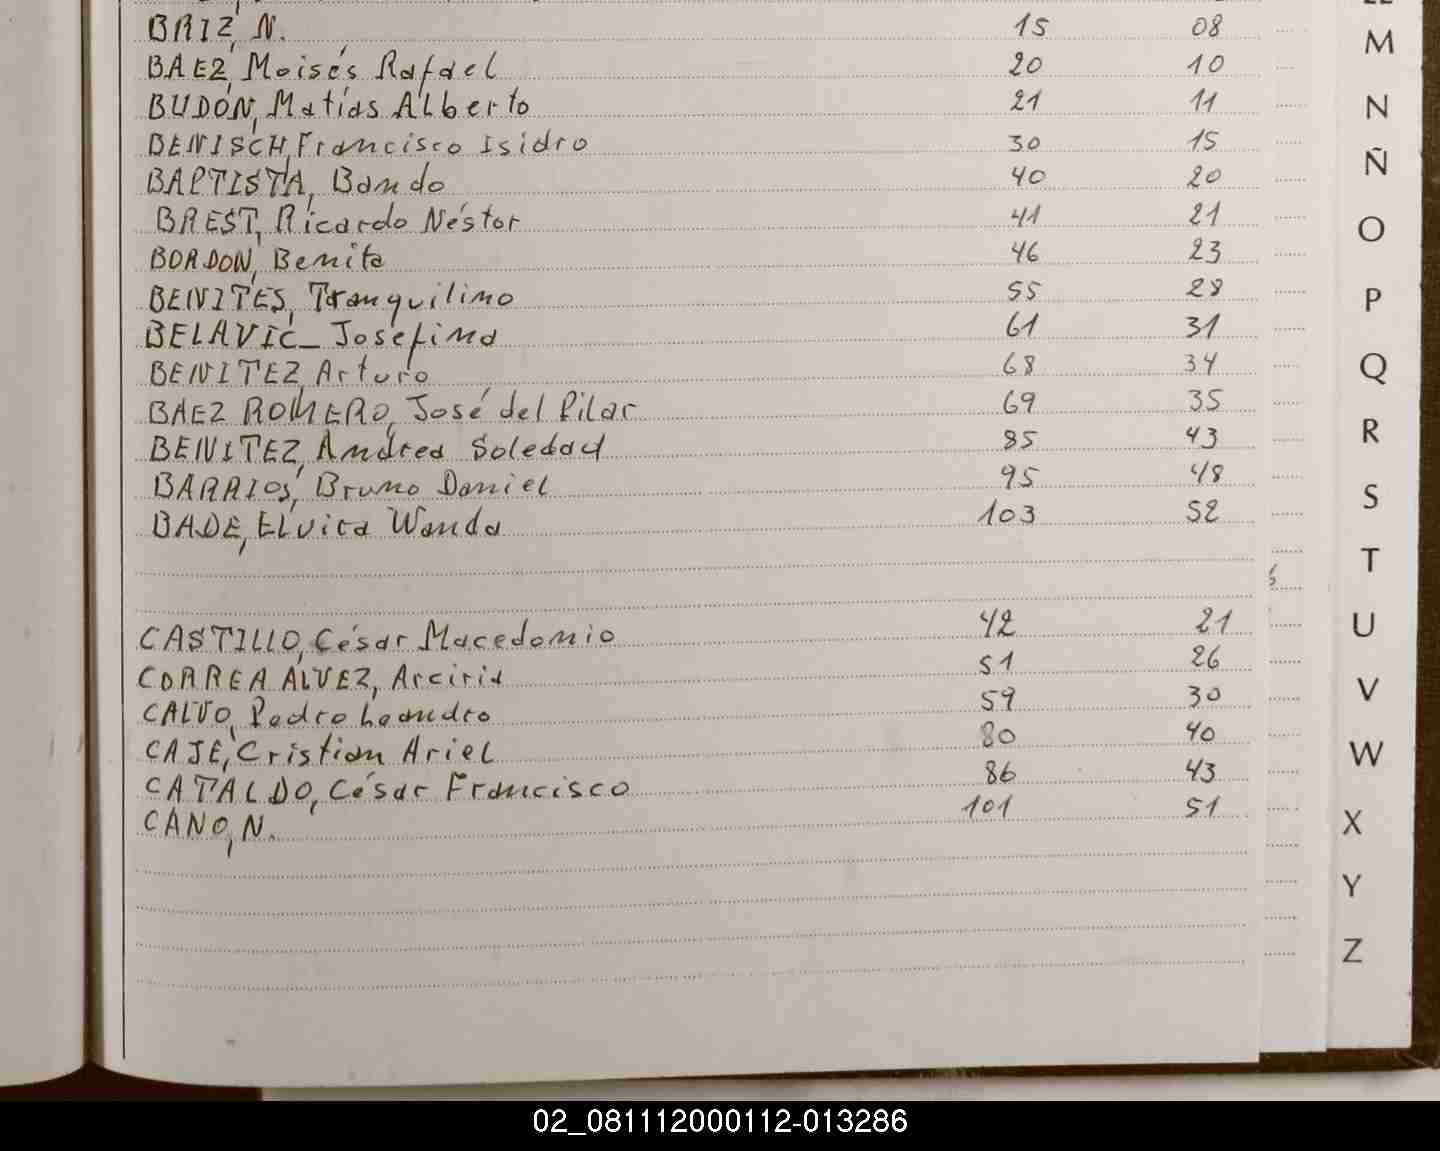 BRIZ, N. 15 08
BAEZ, Moisés Rafael 20 10
BUDÓN, Matías Alberto 21 11
BENISCH, Francisco Isidro 30 15
BAPTISTA, Bando 40 20
BREST, Ricardo Néstor 41 21
BORDON, Benita 46 23
BENITES, Tranquilino 55 28
BELAVIC_ Josefina 61 31
BENITEZ, Arturo 68 34
BAEZ ROMERO, José del Pilar 69 35
BENITEZ, Andrea Soledad 85 43
BARRIOS, Bruno Daniel 95 48
BADE, Elvira Wanda 103 52
CASTILLO, César Macedonio 42 21
CORREA ÁLVEZ, Arciris 51 26
CALVO, Pedro Leandro 59 30
CAJE, Cristian Ariel 80 40
CATALDO, César Francisco 86 43
CANO, N. 101 51
M
N
Ñ
O
P
Q
R
S
T
U
V
W
X
Y
Z
02_081112000112-013286